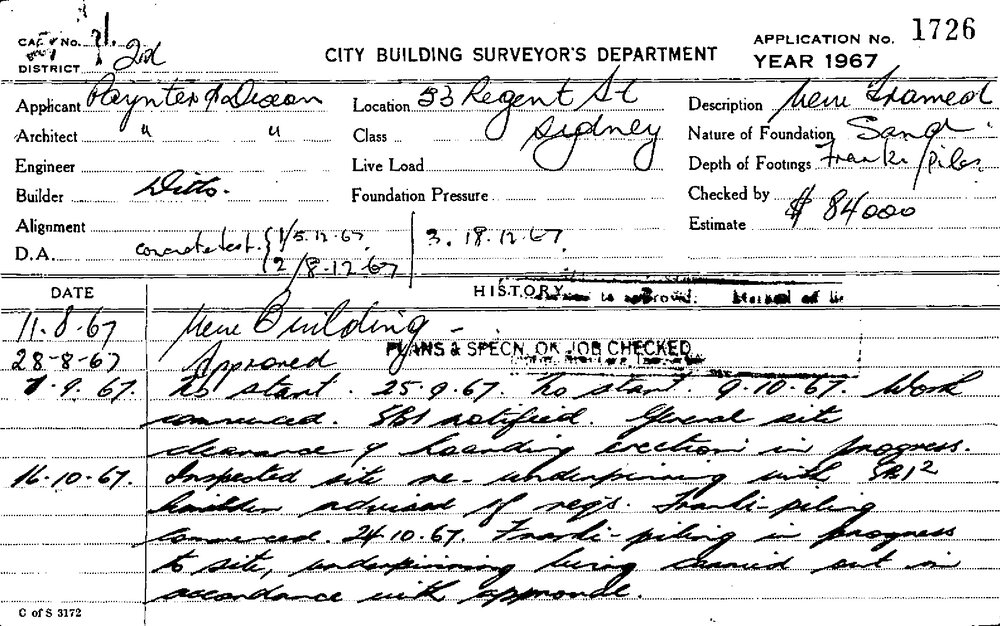 CAT No. 71.
DISTRICT 2nd
CITY BUILDING SURVEYOR'S DEPARTMENT
APPLICATION No. 1726
YEAR 1967
Applicant Paynter & Dixon
Location 53 Regent St
Sydney
Description New Framed
Architect " "
Class
Nature of Foundation Sand.
Engineer
Live Load
Depth of Footings Franki piles
Builder Ditto.
Foundation Pressure
Checked by
Estimate $ 84000
Alignment
D.A. concrete test. 1/5.12.67. 3. 18.12.67.
2/8-12-67
DATE
HISTORY
11.8.67 New Building -
28-8-67 Approved
PLANS & SPECN. ON JOB CHECKED
7.9.67. No start. 25.9.67. No start. 9.10.67. Work
commenced. SBI notified. General site
clearance & hoarding erection in progress.
16.10.67. Inspected site re-underpinning with SBI2
builder advised of reqs. Franki-piling
commenced. 24.10.67. Franki-piling in progress
to site, underpinning being carried out in
accordance with approval.
C of S 3172